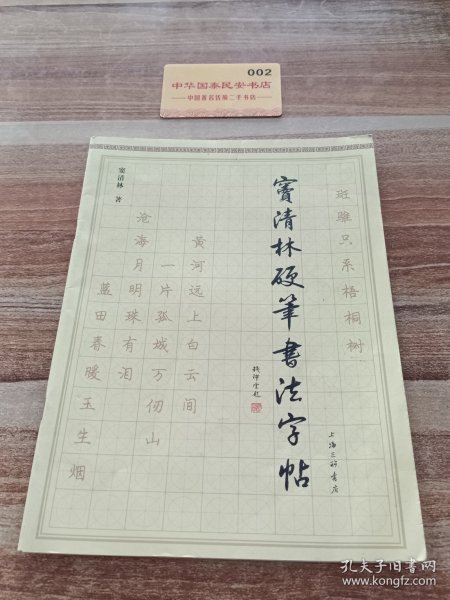 002
中华国泰民安书店
中国著名优质二手书店
斑骓只系梧桐树
窦清林硬笔书法字帖
上海三联书店
钱沛云题
黄河远上白云间
一片孤城万仞山
沧海月明珠有泪
蓝田春暖玉生烟
窦清林 著
孔夫子旧书网
www.kongfz.com